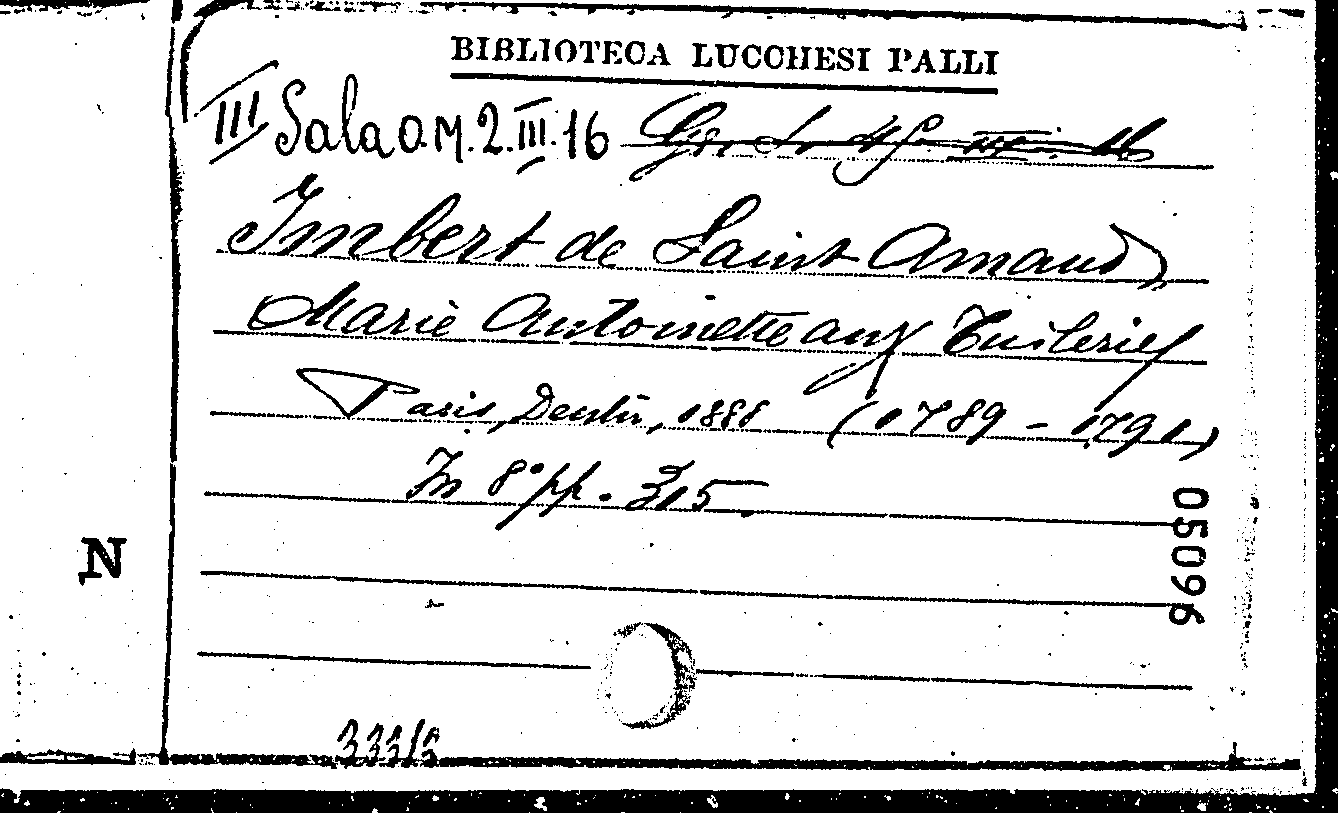 BIBLIOTECA LUCCHESI PALLI
III Sala O.M.2.III.16
Imbert de Saint Amand
Marie Antoinette aux Tuileries
Paris, Dentu, 1888 (1789 - 1791)
In 8° pp. 315.
05096
N
333/3